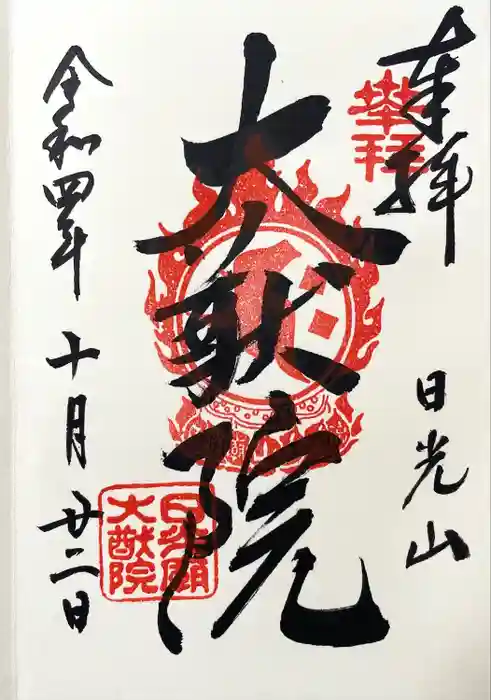 奉拝
奉拝
日光山
大猷院
日光廟
大猷院
令和四年十月廿二日